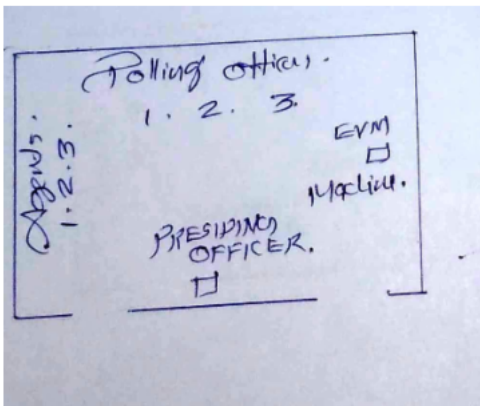 Polling Officers.
1. 2. 3.
Agents.
1. 2. 3.
EVM
Machine.
PRESIDING
OFFICER.